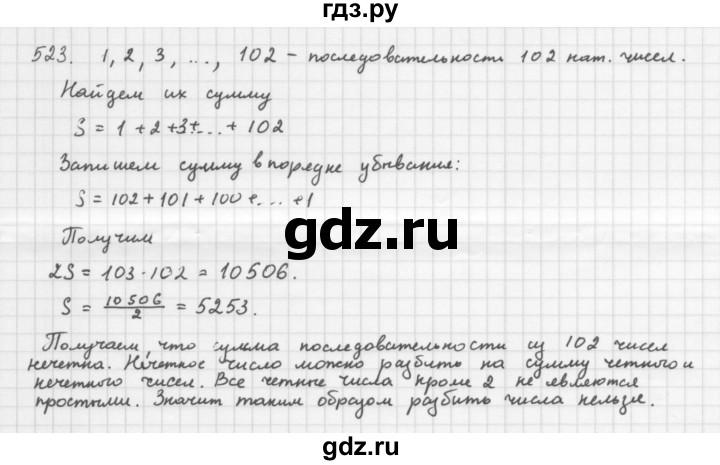 гдз.ру
523. 1, 2, 3, ..., 102 – последовательности 102 нат. чисел.
Найдем их сумму
S = 1 + 2 + 3 + ... + 102
Запишем сумму в порядке убывания:
S = 102 + 101 + 100 + ... + 1
Получим
2S = 103 · 102 = 10506.
S = 10506/2 = 5253.
Получаем, что сумма последовательности из 102 чисел
нечетна. Нечетное число можно разбить на сумму четного и
нечетного чисел. Все четные числа кроме 2 не являются
простыми. Значит таким образом разбить числа нельзя.
gdz.ru
gdz.ru